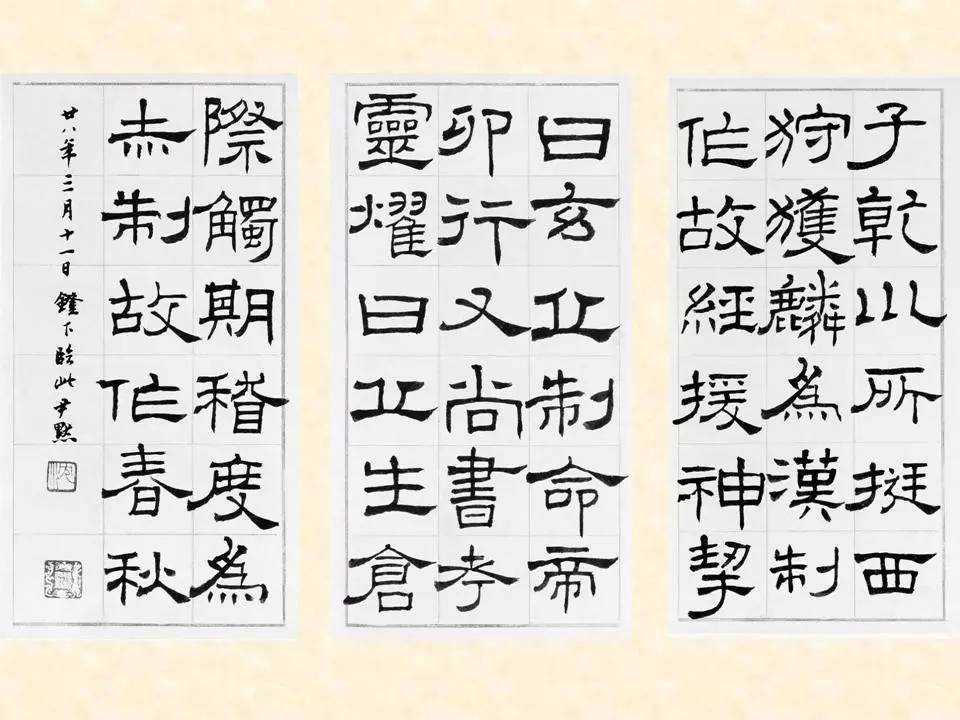 子乾川所挺西
狩獲麟為漢制
作故經援神挈
曰玄丘制命帝
卯行又尚書考
靈燿曰丘生倉
際觸期稽度為
赤制故作春秋
廿八年三月十一日鐙下臨此尹默